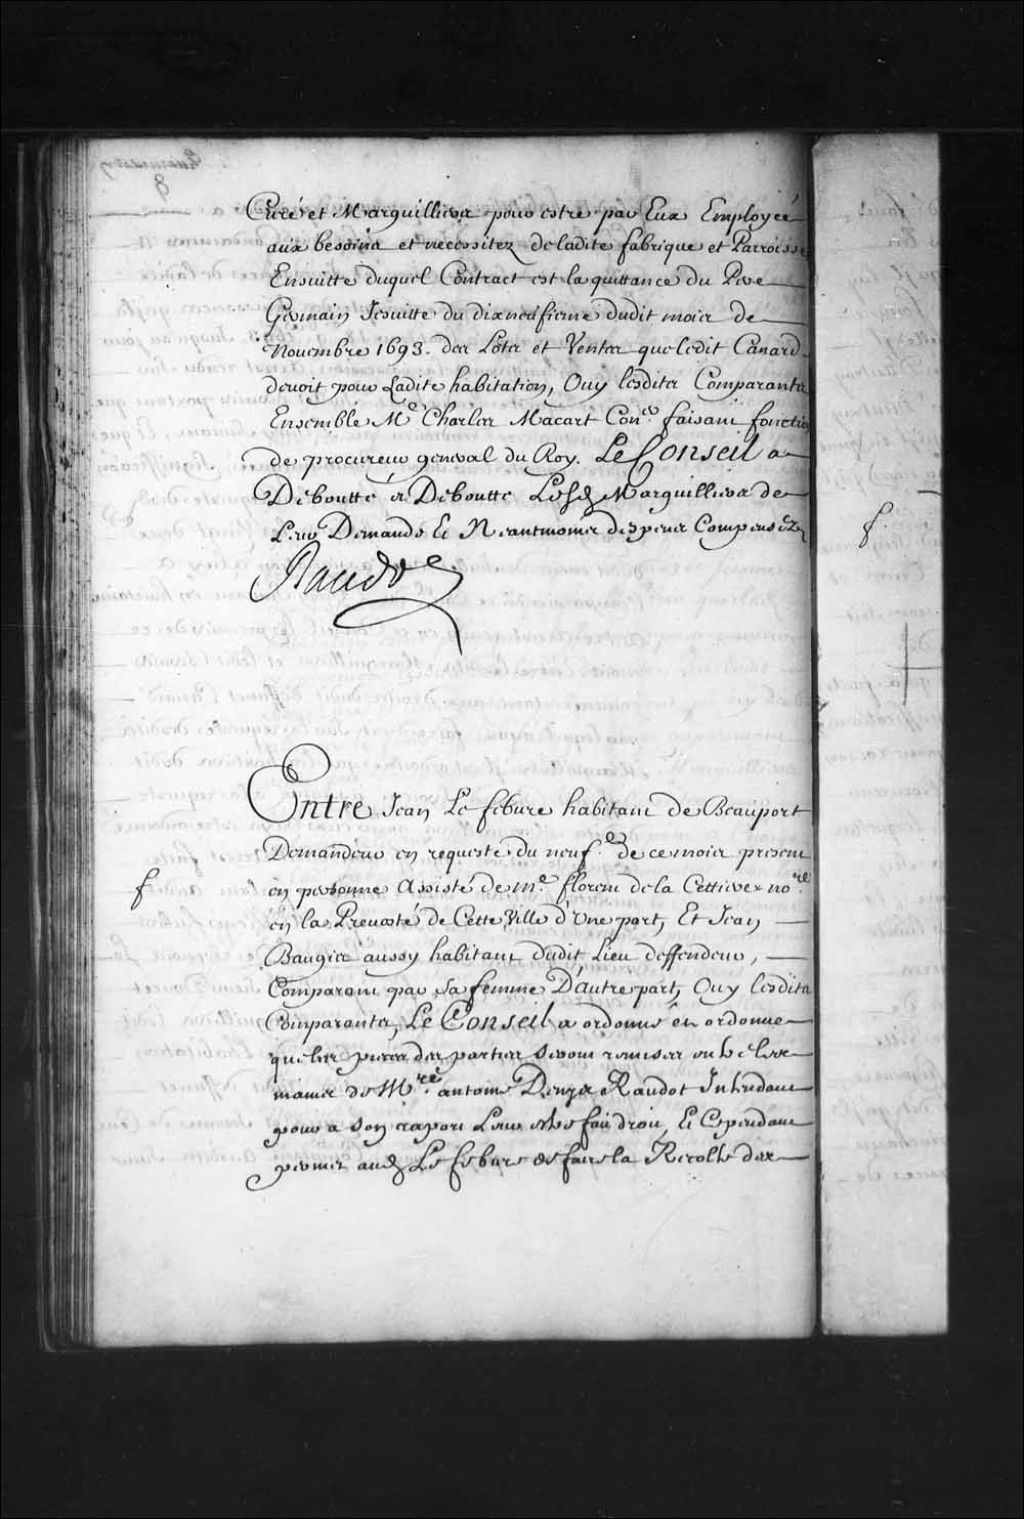 Curé et Marguilliers pour estre par Eux Employéé
aux besoins et necessitez de ladite fabrique et Parroisse
Ensuitte duquel Contract est la quittance du Pere
Germain Jesuitte du dixneufieme dudit mois de
Novembre 1693. des Lots et Ventes que ledit Canard
devoit pour Ladite habitation, Ouy lesdits Comparants
Ensemble Me Charles Macart Coner faisant fonction
de procureur general du Roy. Le Conseil a
Deboutté et Deboutte Lesd Marguilliers de
Leur Demande Et Neantmoins despens Compensez
Raudot
Entre Jean Le febure habitant de Beauport
Demandeur en requeste du neufe de ce mois present
f en personne Assisté de me florent de la Cettiere nore
en la Prevosté de Cette Ville d'Une part, Et Jean
Baugis aussy habitant dudit Lieu deffendeur,
Comparant par sa femme D'autre part, Ouy lesdits
Comparants, Le Conseil a ordonné et ordonne
que les pieces des parties seront remises entre les
mains de Mre antoine Denys Raudot Intendant
pour a son raport Leur estre fait droit, Et Cependant
permis aud Le febure de faire la Recolte des
f.